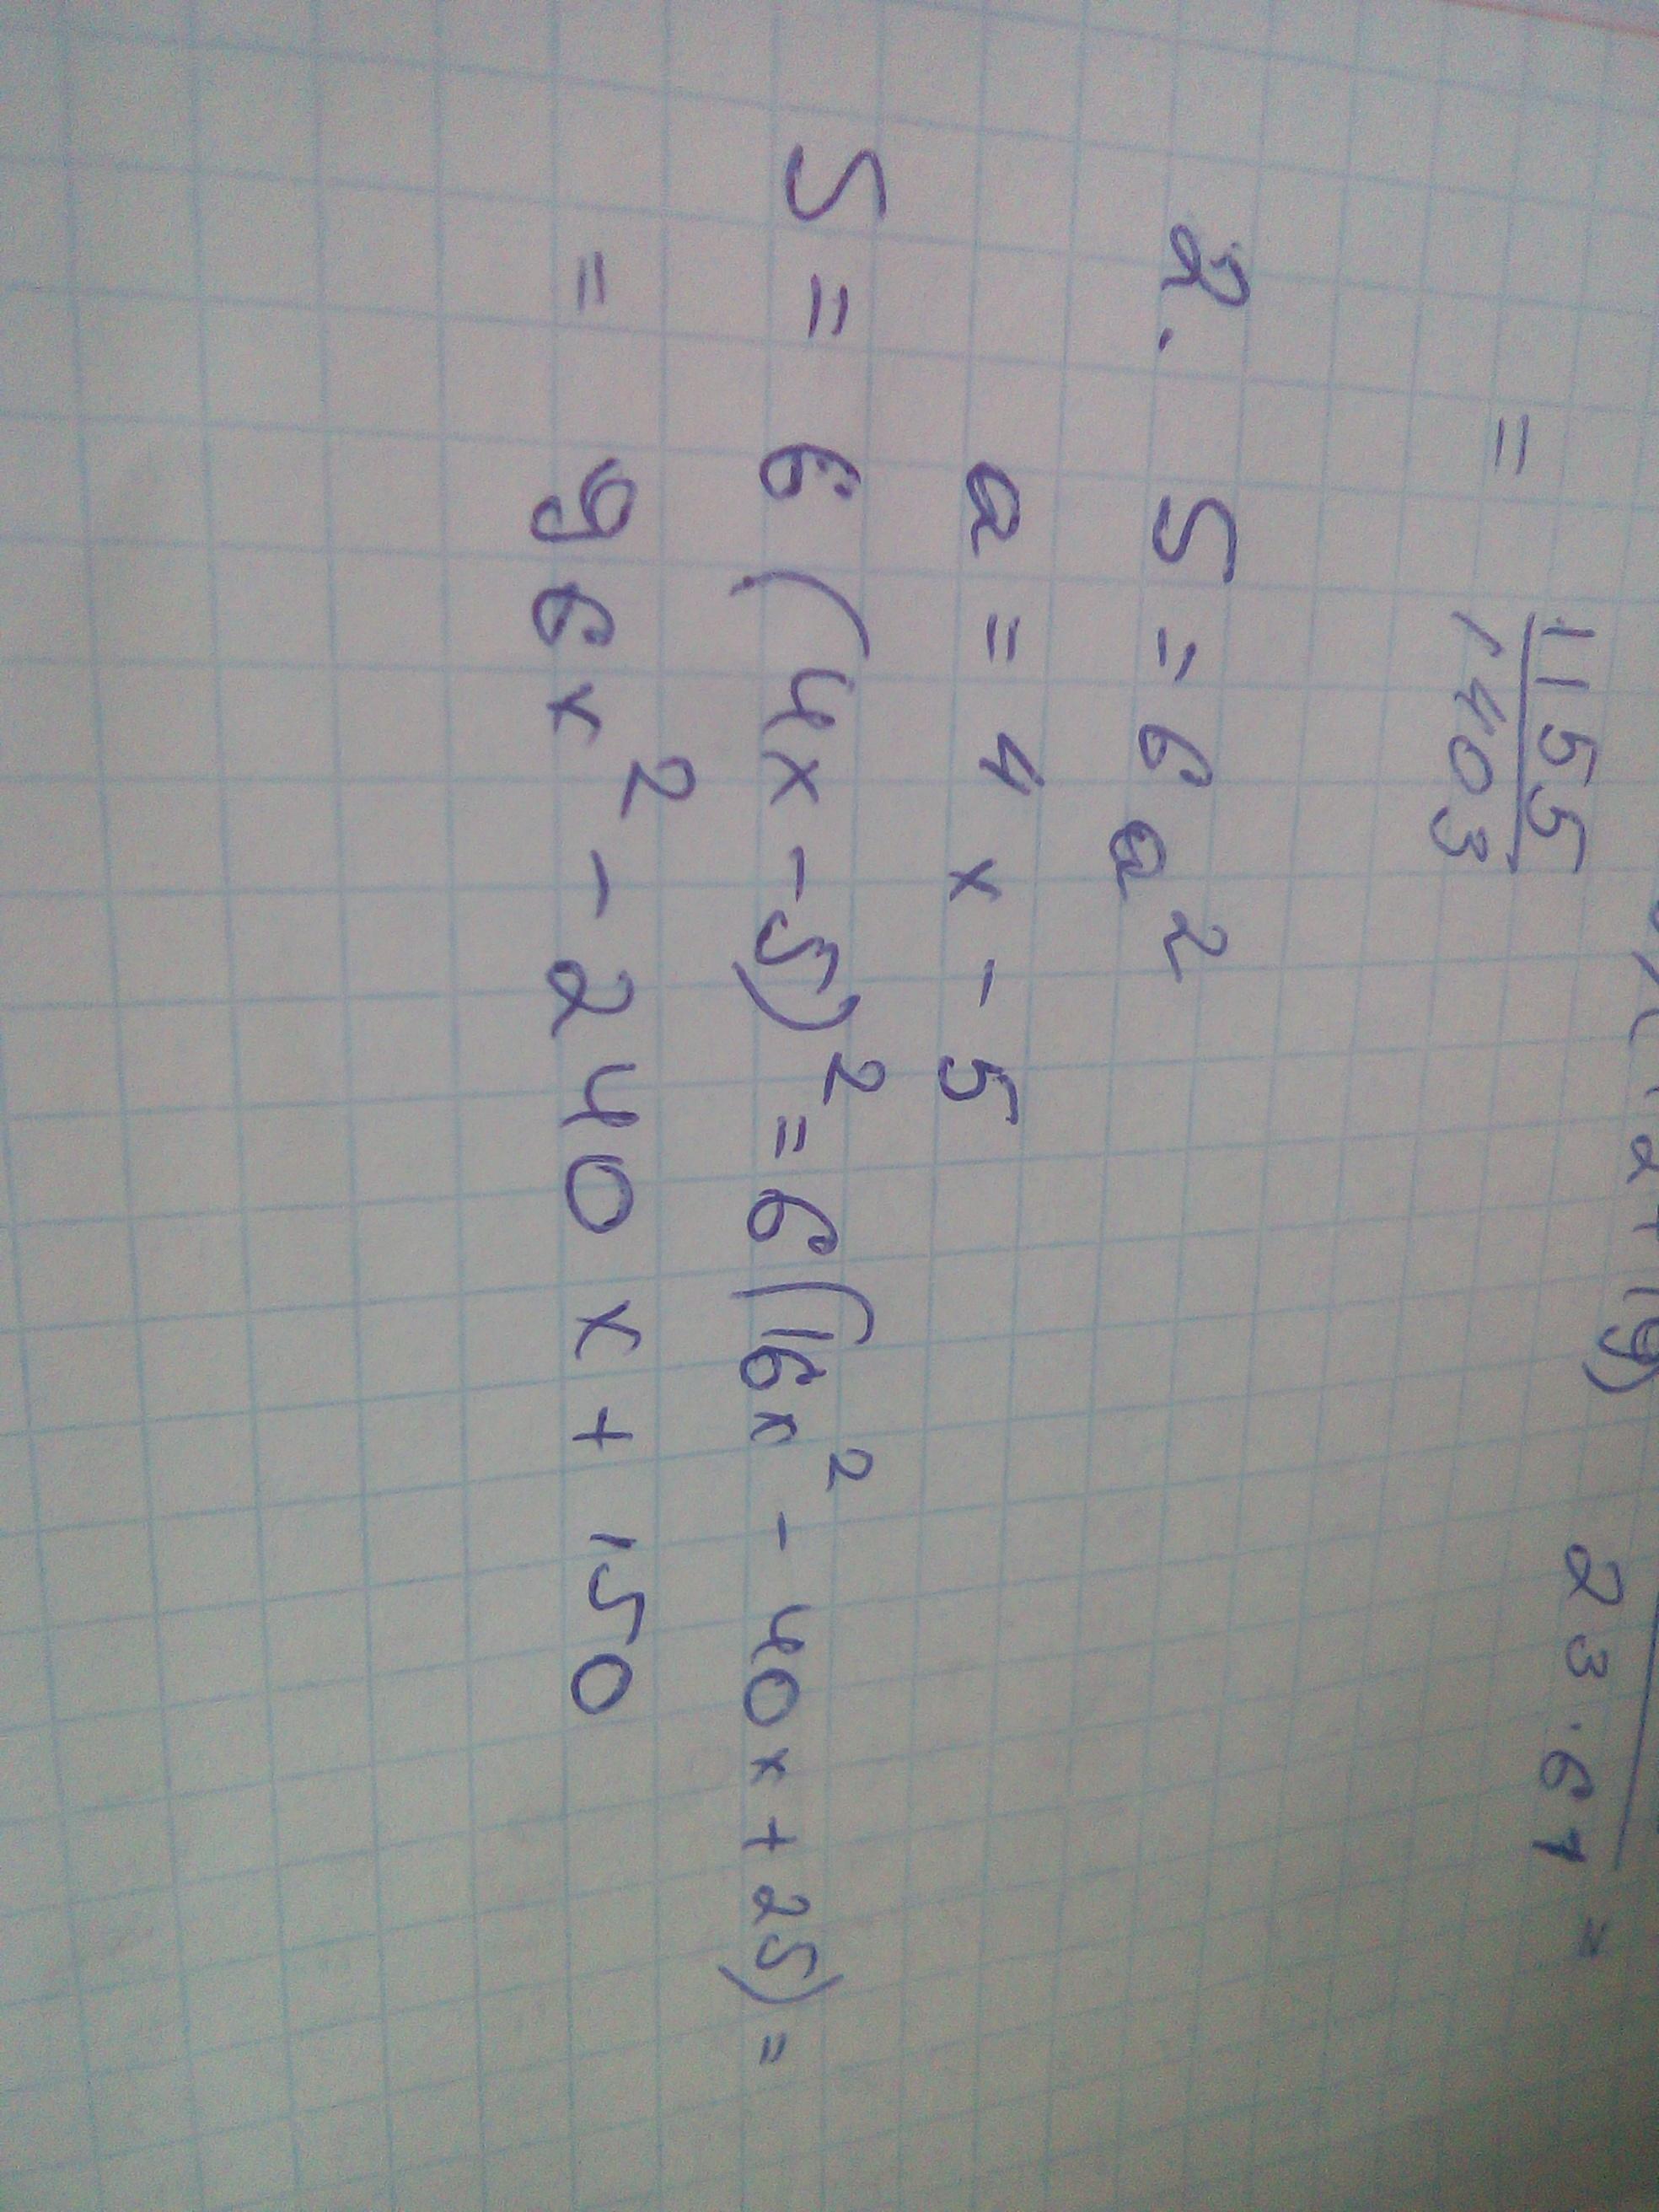 23·61 =
= 1155
1403
2. S = 6a²
a = 4x - 5
S = 6(4x - 5)² = 6(16x² - 40x + 25) =
= 96x² - 240x + 150